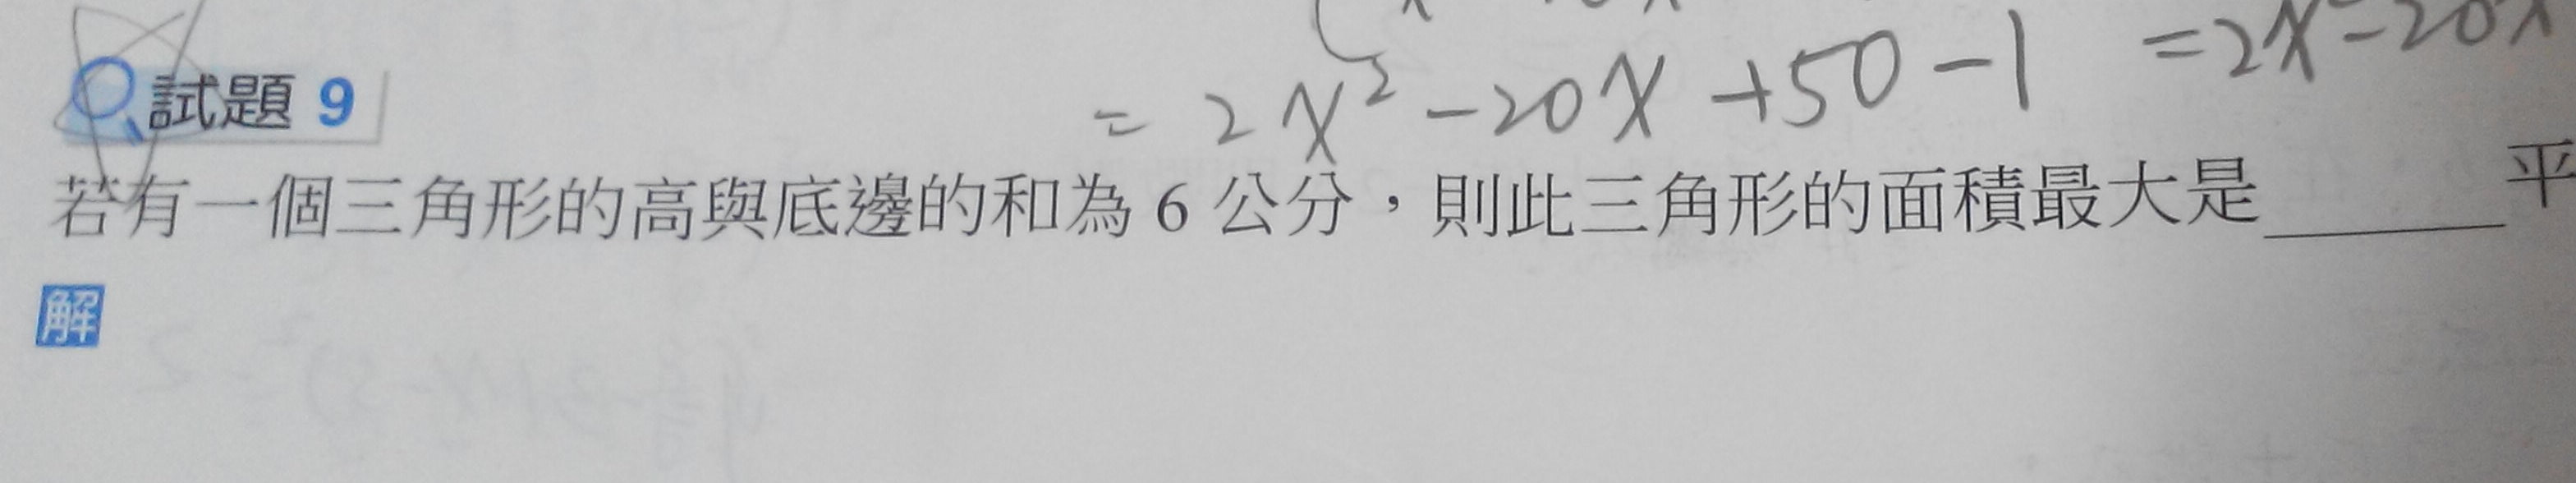 = 2x² - 20x + 50 - 1 = 2x² - 20x
試題 9
若有一個三角形的高與底邊的和為 6 公分，則此三角形的面積最大是______平
解